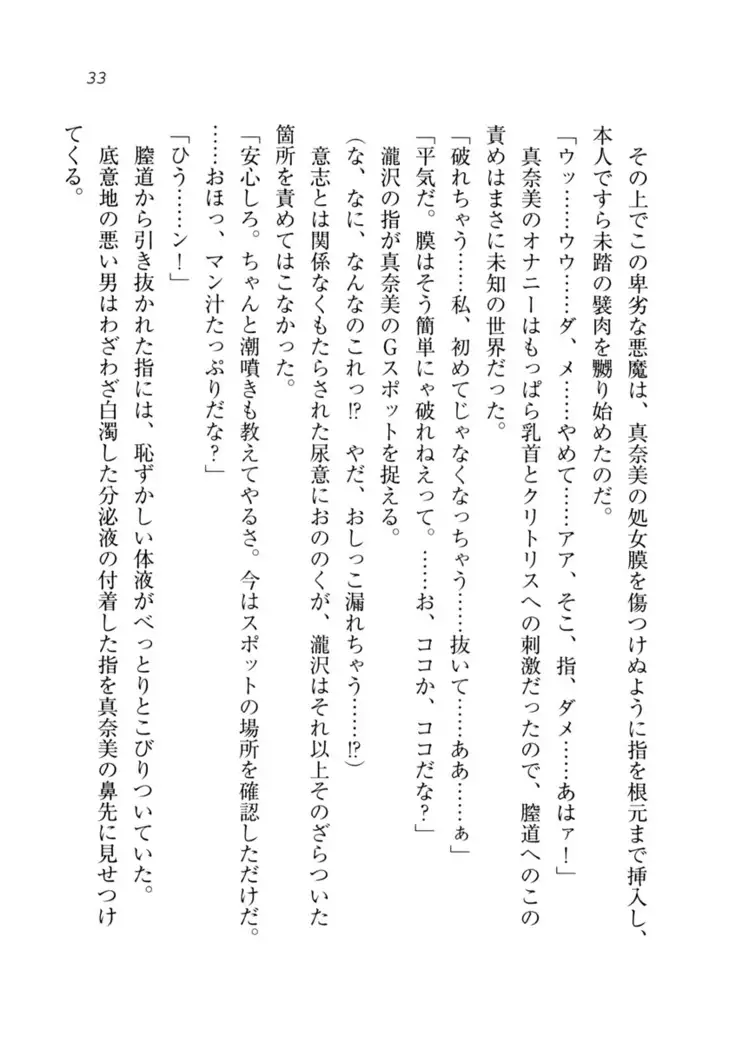 33
その上でこの卑劣な悪魔は、真奈美の処女膜を傷つけぬように指を根元まで挿入し、
本人ですら未踏の襞肉を嬲り始めたのだ。
「ウッ……ウウ……ダ、メ……やめて……アア、そこ、指、ダメ……あはァ！」
真奈美のオナニーはもっぱら乳首とクリトリスへの刺激だったので、膣道へのこの
責めはまさに未知の世界だった。
「破れちゃう……私、初めてじゃなくなっちゃう……抜いて……ああ……ぁ」
「平気だ。膜はそう簡単にゃ破れねえって。……お、ココか、ココだな？」
瀧沢の指が真奈美のGスポットを捉える。
（な、なに、なんなのこれっ!?　やだ、おしっこ漏れちゃう……!?）
意志とは関係なくもたらされた尿意におののくが、瀧沢はそれ以上そのざらついた
箇所を責めてはこなかった。
「安心しろ。ちゃんと潮噴きも教えてやるさ。今はスポットの場所を確認しただけだ。
……おほっ、マン汁たっぷりだな？」
「ひう……ン！」
膣道から引き抜かれた指には、恥ずかしい体液がべっとりとこびりついていた。
底意地の悪い男はわざわざ白濁した分泌液の付着した指を真奈美の鼻先に見せつけ
てくる。